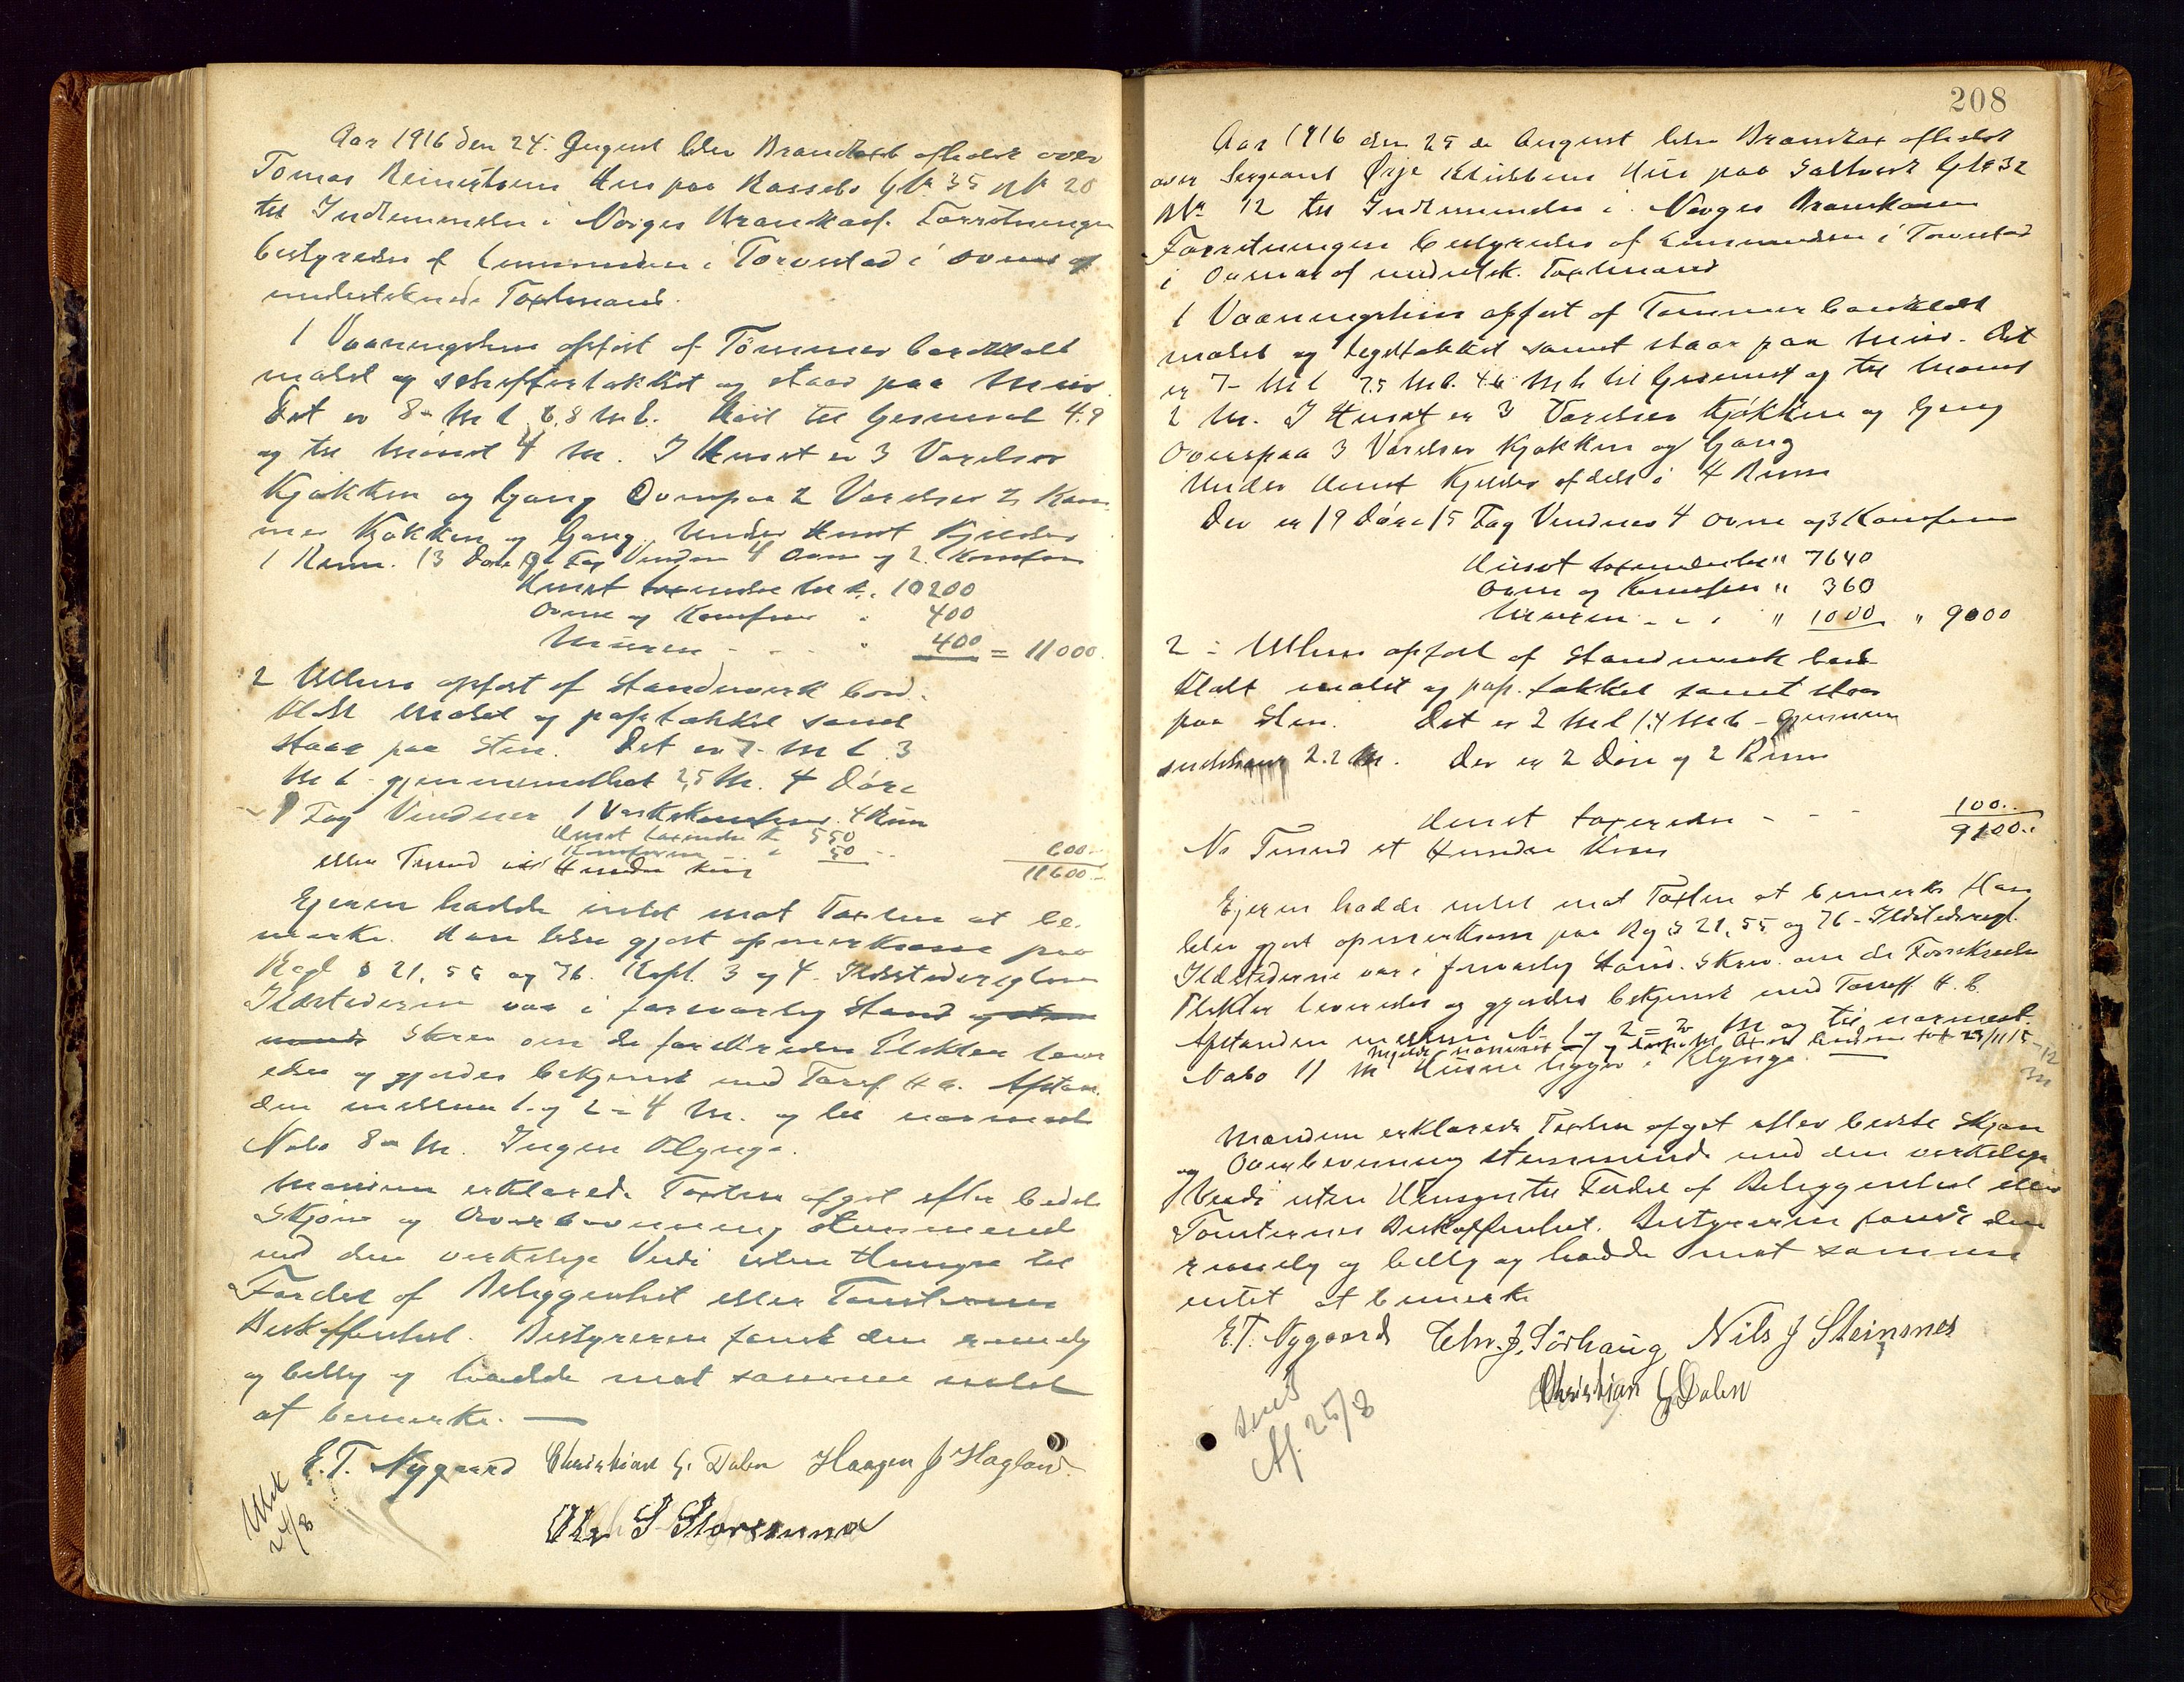 Aar 1916 den 24. August blev Brandtaxt afholdt over
Tomas Reinertsens Hus paa Bassebø G.Nr 35 B.Nr 20
til Indlemmelse i Norges Brandkasse. Forretningen
bestyredes af Lensmanden i Torvestad i Overvær af
undertegnede Taxtmænd.
1 Vaaningshus opført af Tømmer bordklædt
malet og skiffertækket og staar paa Mur
Det er 8- M l 6,8 M b. Høit til Gesimsed 4.9
og til Mønet 4 M. I Huset er 3 Værelser
Kjøkken og Gang Ovenpaa 2 Værelser 2 Kam
mer Kjøkken og Gang. Under Huset Kjelder
1 Rum. 13 Døre 19 Fag Vinduer 4 Ovne og 2 Komfur
Huset taxeredes til k. 10200
Ovne og Komfur " 400
Muren - - - " 400 = 11000.
2 Udhus opført af Standverk bord-
klædt malet og paptækket samt
staar paa Sten. Det er 7- M l 3
M b - gjennemsnithøit 2,5 M. 4 Døre
1 Fag Vinduer 1 Vaskekomfur. 4 Rum
Huset taxeredes k 550
Komfuren " 50 - 600.-
eller Tusind sex Hundre Kroner 11600.-
Ejeren hadde intet mot Taxten at be-
merke. Han blev gjort opmerksom paa
Regl § 21, 55 og 76. Kapl. 3 og 4. Ildstedsreglerne
Ildstederne var i forsvarlig Stand
Skrev om de foreskrevne Plikter lever
edes og gjordes bekjennt med Tarif H b. Afstan
den mellem 1 og 2 = 4 M. og til nærmeste
Nabo 8- M. Ingen Klynge.
Mændene erklærede Taxten afgit efter bedste
Skjøn og Overbevisning stemmende
med den verkelige Verdi uten Hensyn til
Fordel af Beliggenhet eller Tomternes
Beskaffenhet. Bestyreren fandt den rimelig
og billig og hadde mot samme intet
at bemerke. —
E. T. Nygaard Christian G. Dalen Haagen J Hagland.
Ole S Storesund
Utsk
24/8
208
Aar 1916 den 25 de August blev Brandtax afholdt
over Sergeant Ørje Hus paa Saltveit G Nr 32
B.Nr 12 til Indlemmelse i Norges Brandkasse
Forretningen bestyredes af Lensmanden i Torvestad
i Overvær af undertek. Taxtmænd
1 Vaaningshus opført af Tømmer bordklædt
malet og teglstækket samt staar paa Mur. Det
er 7- M l 7.5 M b. 4.6 M h til Gesimset og til Mønet
2 M. I Huset er 3 Værelser Kjøkken og Gang
Ovenpaa 3 Værelser Kjøkken og Gang
Under Huset Kjelder afdelt i 4 Rum
Der er 19 Døre 15 Fag Vinduer 4 Ovne og 3 Komfur
Huset taxeredes " 7640
Ovne og Komfur " 360
Muren - - - " 1000 " 9000
2 - Udhus opført af Standverk bord
klædt malet og pap. tækket samt staar
paa Sten. Det er 2 M l 1.4 M b - gjennem
snitshøide 2.2 M. Der er 2 Døre og 2 Rum
Huset taxeredes - - - 100.-
Ni Tusind et Hundre Kroner 9100.-
Ejeren hadde intet mot Taxten at bemerke Han
blev gjort opmerksom paa Rg § 21, 55 og 76 - Ildstedsregl.
Ildstederne var i forsvarlig Stand. Skrev om de Foreskrevne
Plikter leveredes og gjordes bekjennt med Tariff H. b.
Afstanden mellem No 1 og 2 = 2 M og til nærmest
Nabo 11 M Husene ligger i Klynge. —
Mændene erklærede Taxten afgit efter bedste Skjøn
og Overbevisning stemmende med den verkelige
Verdi uten Hensyn til Fordel af Beliggenhet eller
Tomternes Beskaffenhet. Bestyreren fandt den
rimelig og billig og hadde mot samme
intet at bemerke
E.T. Nygaard Chr. J. Sörhaug Nils J Steinsnes
Christian G Dalen
Af. 25/8